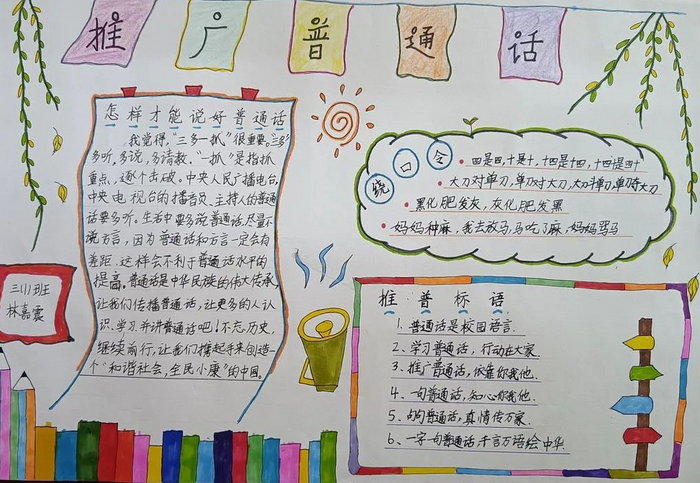 推广普通话
怎样才能说好普通话
我觉得,“三多一抓”很重要。“三多”
多听,多说,多请教。“一抓”是指抓
重点,逐个击破。中央人民广播电台,
中央电视台的播音员、主持人的普通
话要多听。生活中要多说普通话,尽量不
说方言,因为普通话和方言一定会有
差距.这样会不利于普通话水平的
提高,普通话是中华民族的伟大传承,
让我们传播普通话,让更多的人认
识、学习并讲普通话吧!不忘历史,
继续前行,让我们携起手来创造一
个“和谐社会,全民小康”的中国.
三(1)班
林嘉震
绕口令
四是四,十是十,十四是十四,十四是四十
大刀对单刀,单刀对大刀,大刀斗单刀,单刀夺大刀
黑化肥发灰,灰化肥发黑
妈妈种麻,我去放马,马吃了麻,妈妈骂马
推普标语
1、普通话是校园语言.
2、学习普通话,行动在大家.
3、推广普通话,依靠你我他.
4、一句普通话,知心你我他.
5、句句普通话,真情传万家.
6、一字一句普通话,千言万语绘中华.